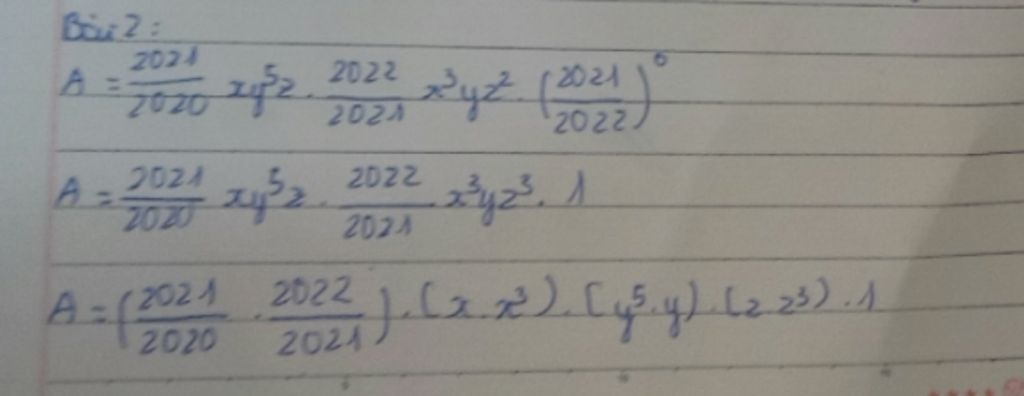 Bài 2:
A = 2021/2020 xy⁵z . 2022/2021 x³yz² . (2021/2022)⁰
A = 2021/2020 xy⁵z . 2022/2021 x³yz³ . 1
A = (2021/2020 . 2022/2021) . (x . x³) . (y⁵ . y) . (z . z³) . 1